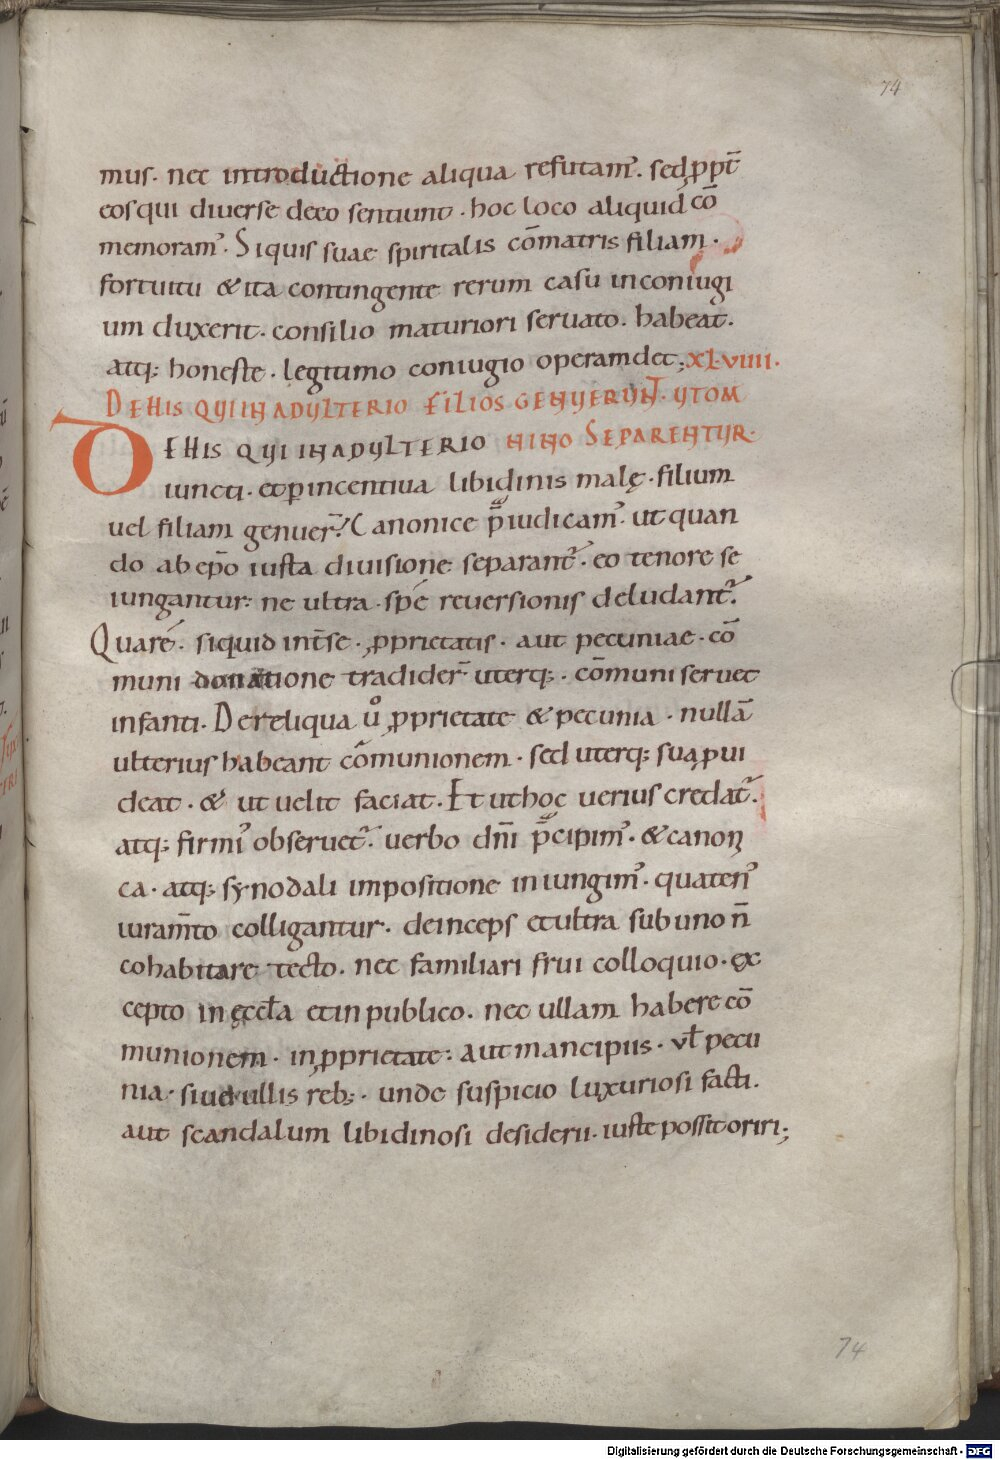 74
mus. nec introductione aliqua refutam᾽. sed ꝓpt̄
eos qui diverse deeo sentiunt. hoc loco aliquid cō
memoram᾽. Siquis suae spiritalis cōmatris filiam.
fortuitu & ita contingente rerum casu in coniugi
um duxerit. consilio maturiori servato. habeat.
atq; honeste. legitimo coniugio operam det; XLVIIII.
DE HIS QUI IN ADULTERIO FILIOS GENUERUNT. UT OM
DE HIS QUI IN ADULTERIO NINO SEPARENTUR.
iuncti. et ꝑ incentiva libidinis malę. filium
vel filiam genuer̄? Canonice p̄iudicam᾽. ut quan
do ab ep̄o iusta divisione separant᾽. eo tenore se
iungantur: ne ultra. spē reversionis deludant᾽.
Quarē. siquid int̄ se. ꝓprietatis. aut pecuniae. cō
muni donatione tradider̄ uterq;. cōmuni servet
infanti. De reliqua ů ꝓprietate & pecunia. nullā
ulterius habeant cōmunionem. sed uterq; sua ꝓvi
deat. & ut velit faciat. Et ut hoc verius credat᾽.
atq; firmi᾽ observet᾽. verbo dn̄i p̄cipim᾽. & canoni
ca. atq; synodali impositione iniungim᾽. quaten᾽
iuram̄to colligantur. deinceps et ultra sub uno n̄
cohabitare tecto. nec familiari frui colloquio. ex
cepto in ęccl̄a et in publico. nec ullam habere cō
munionem. in ꝓprietate: aut mancipiis. vl̄ pecu
nia. sive ullis reb;. unde suspicio luxuriosi facti.
aut scandalum libidinosi desiderii. iuste possit oriri;
74
Digitalisierung gefördert durch die Deutsche Forschungsgemeinschaft - DFG